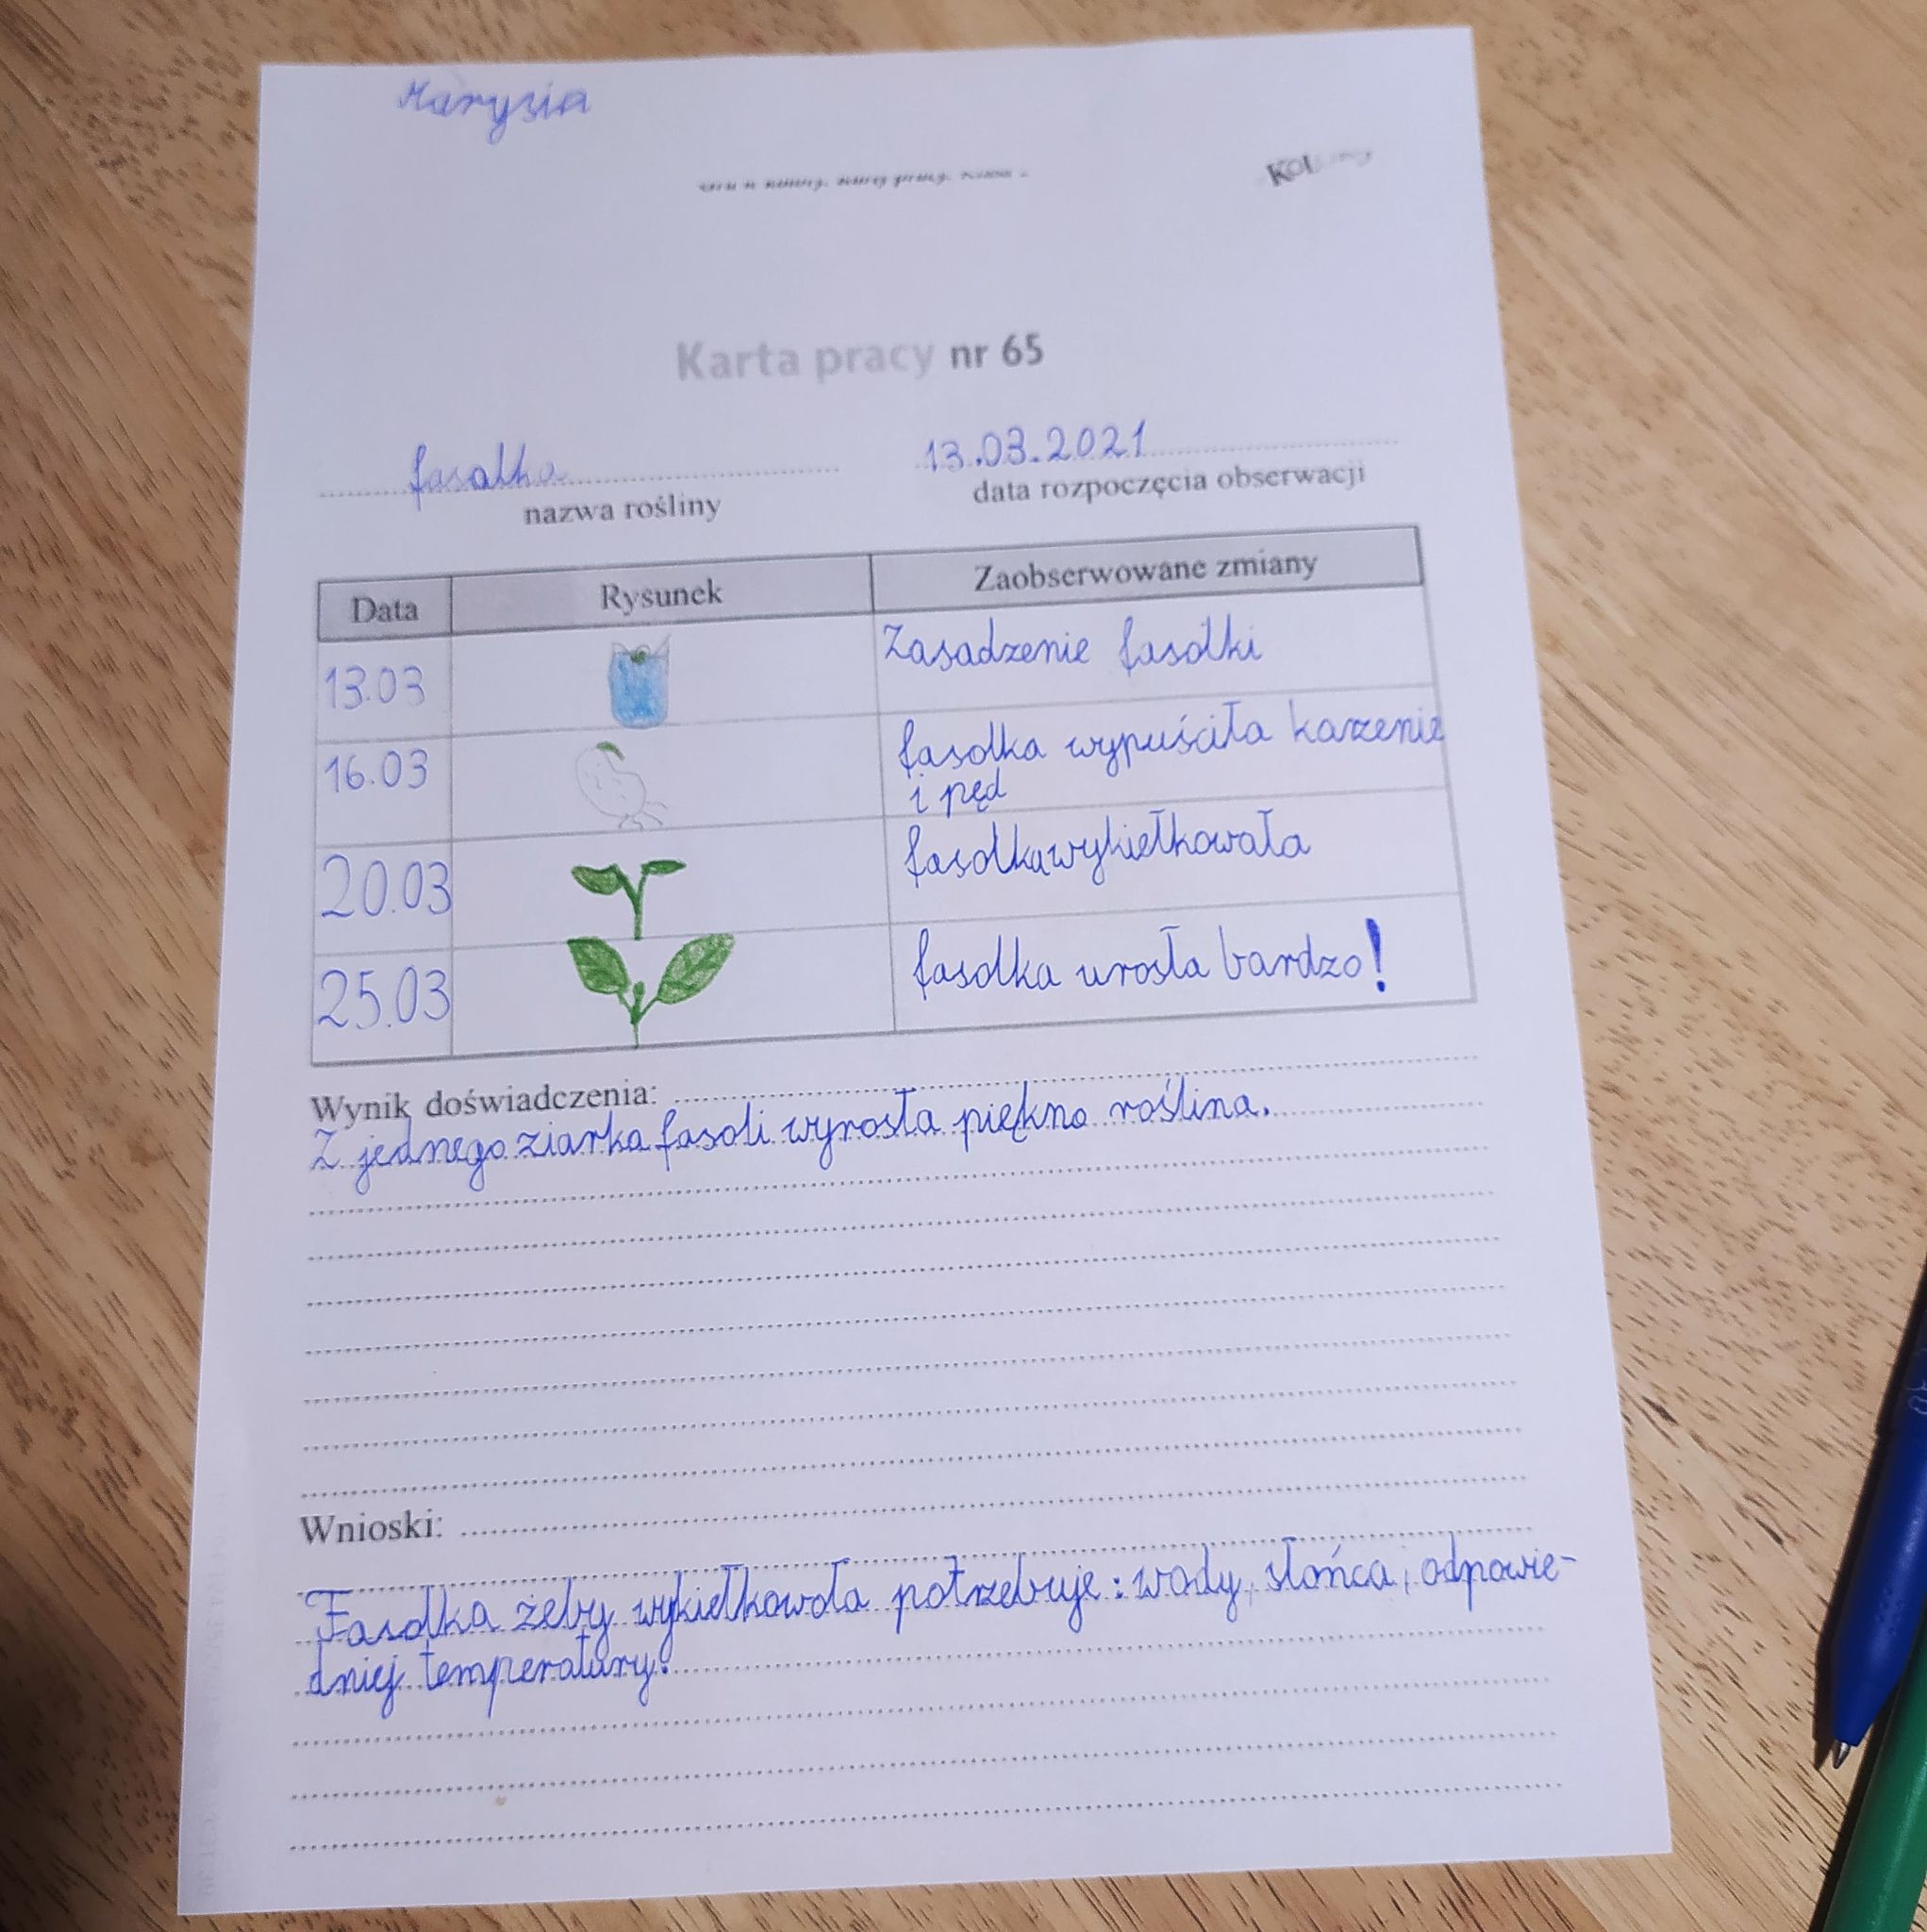 Marysia
Karta pracy nr 65
fasolka 13.03.2021
nazwa rośliny data rozpoczęcia obserwacji
Data Rysunek Zaobserwowane zmiany
13.03 Zasadzenie fasolki
16.03 fasolka wypuściła korzenie
i pęd
20.03 fasolka wykiełkowała
25.03 fasolka urosła bardzo!
Wynik doświadczenia:
Z jednego ziarka fasoli wyrosła piękna roślina.
Wnioski:
Fasolka żeby wykiełkowała potrzebuje: wody, słońca, odpowie-
dniej temperatury.